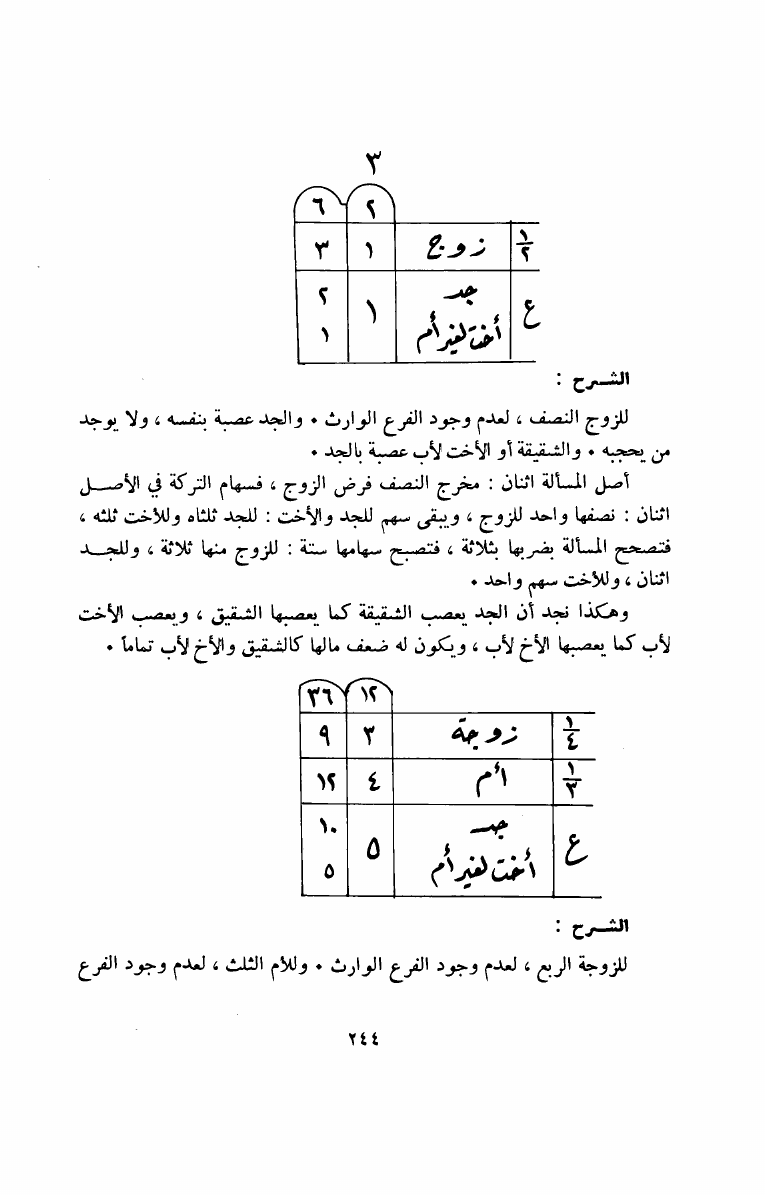 ٣
٦ ٢
١/٢ زوج ١ ٣
ع جد ١ ٢
أخت لغير أم ١
الشـرح :
للزوج النصف ، لعدم وجود الفرع الوارث • والجد عصبة بنفسه ، ولا يوجد
من يحجبه • والشقيقة أو الأخت لأب عصبة بالجد •
أصل المسألة اثنان : مخرج النصف فرض الزوج ، فسهام التركة في الأصـــل
اثنان : نصفها واحد للزوج ، ويبقى سهم للجد والأخت : للجد ثلثاه وللأخت ثلثه ،
فتصحح المسألة بضربها بثلاثة ، فتصبح سهامها ستة : للزوج منها ثلاثة ، وللجـــد
اثنان ، وللأخت سهم واحد •
وهكذا نجد أن الجد يعصب الشقيقة كما يعصبها الشقيق ، ويعصب الأخت
لأب كما يعصبها الأخ لأب ، ويكون له ضعف مالها كالشقيق والأخ لأب تماماً •
٣٦ ١٢
١/٤ زوجة ٣ ٩
١/٣ أم ٤ ١٢
ع جد ٥ ١٠
أخت لغير أم ٥
الشـرح :
للزوجة الربع ، لعدم وجود الفرع الوارث • وللأم الثلث ، لعدم وجود الفرع
٢٤٤